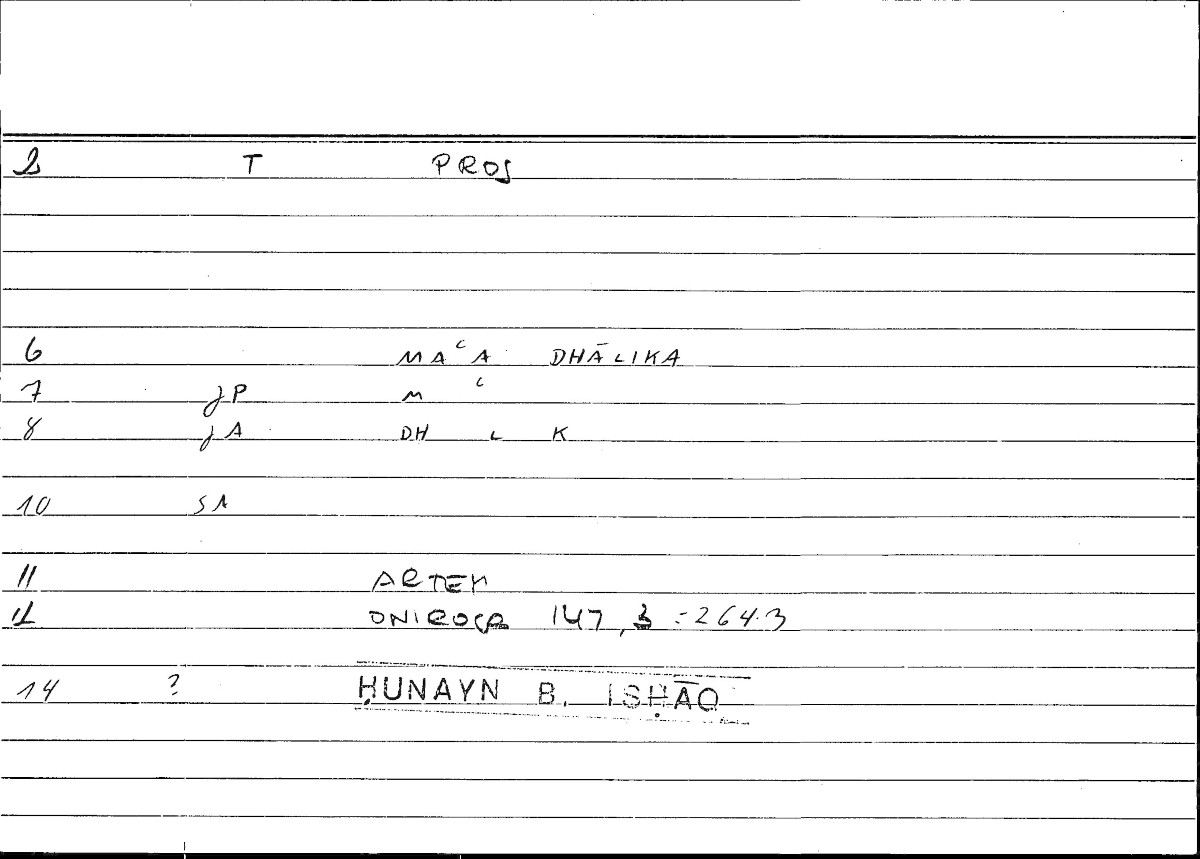 2 T PROS
6 MAʿA DHĀLIKA
7 JP M ʿ
8 JA DH L K
10 SA
11 ARTEM
12 ONIROCR 147,3 = 264.3
14 ? ḤUNAYN B. ISḤĀQ